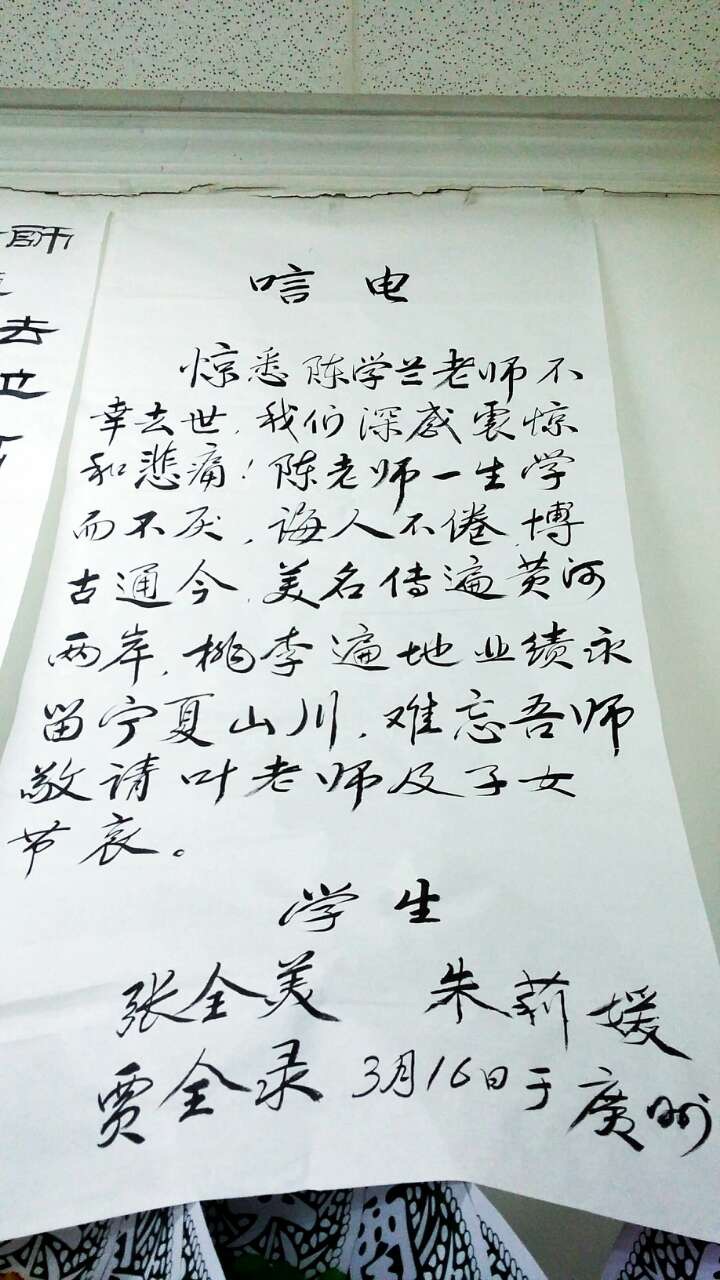 唁电
惊悉陈学兰老师不
幸去世,我们深感震惊
和悲痛!陈老师一生学
而不厌,诲人不倦,博
古通今,美名传遍黄河
两岸,桃李遍地业绩永
留宁夏山川,难忘吾师
敬请叶老师及子女
节哀。
学生
张全美 朱莉媛
贾全录 3月16日于廣州
師
去